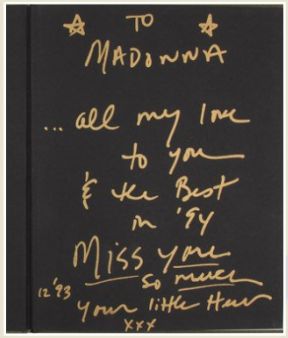 ☆ TO ☆
MADONNA
... all my love
to you
& the Best
in '94
Miss you
so much
12 '93 your little
xxx